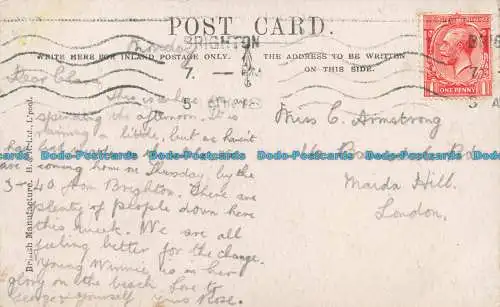 POST CARD.
BRIGHTON
WRITE HERE FOR INLAND POSTAGE ONLY.
THE ADDRESS TO BE WRITTEN
ON THIS SIDE.
British Manufacture. B. & R. Ltd., L'pool.
Monday
Dear Clara
This is where we are
spending the afternoon. It is
raining a little, but we haven't
coming home on Thursday, by the
3-40 from Brighton. There are
plenty of people down here
this week. We are all
feeling better for the change.
Young Winnie is in her
glory on the beach. Love to
George & yourself yours Rose.
7.
5
BRIGHTON
7.
5
POSTAGE
ONE PENNY
1
Miss C. Armstrong
Maida Hill.
London.
bidds-Postcards
bidds-Postcards
bidds-Postcards
bidds-Postcards